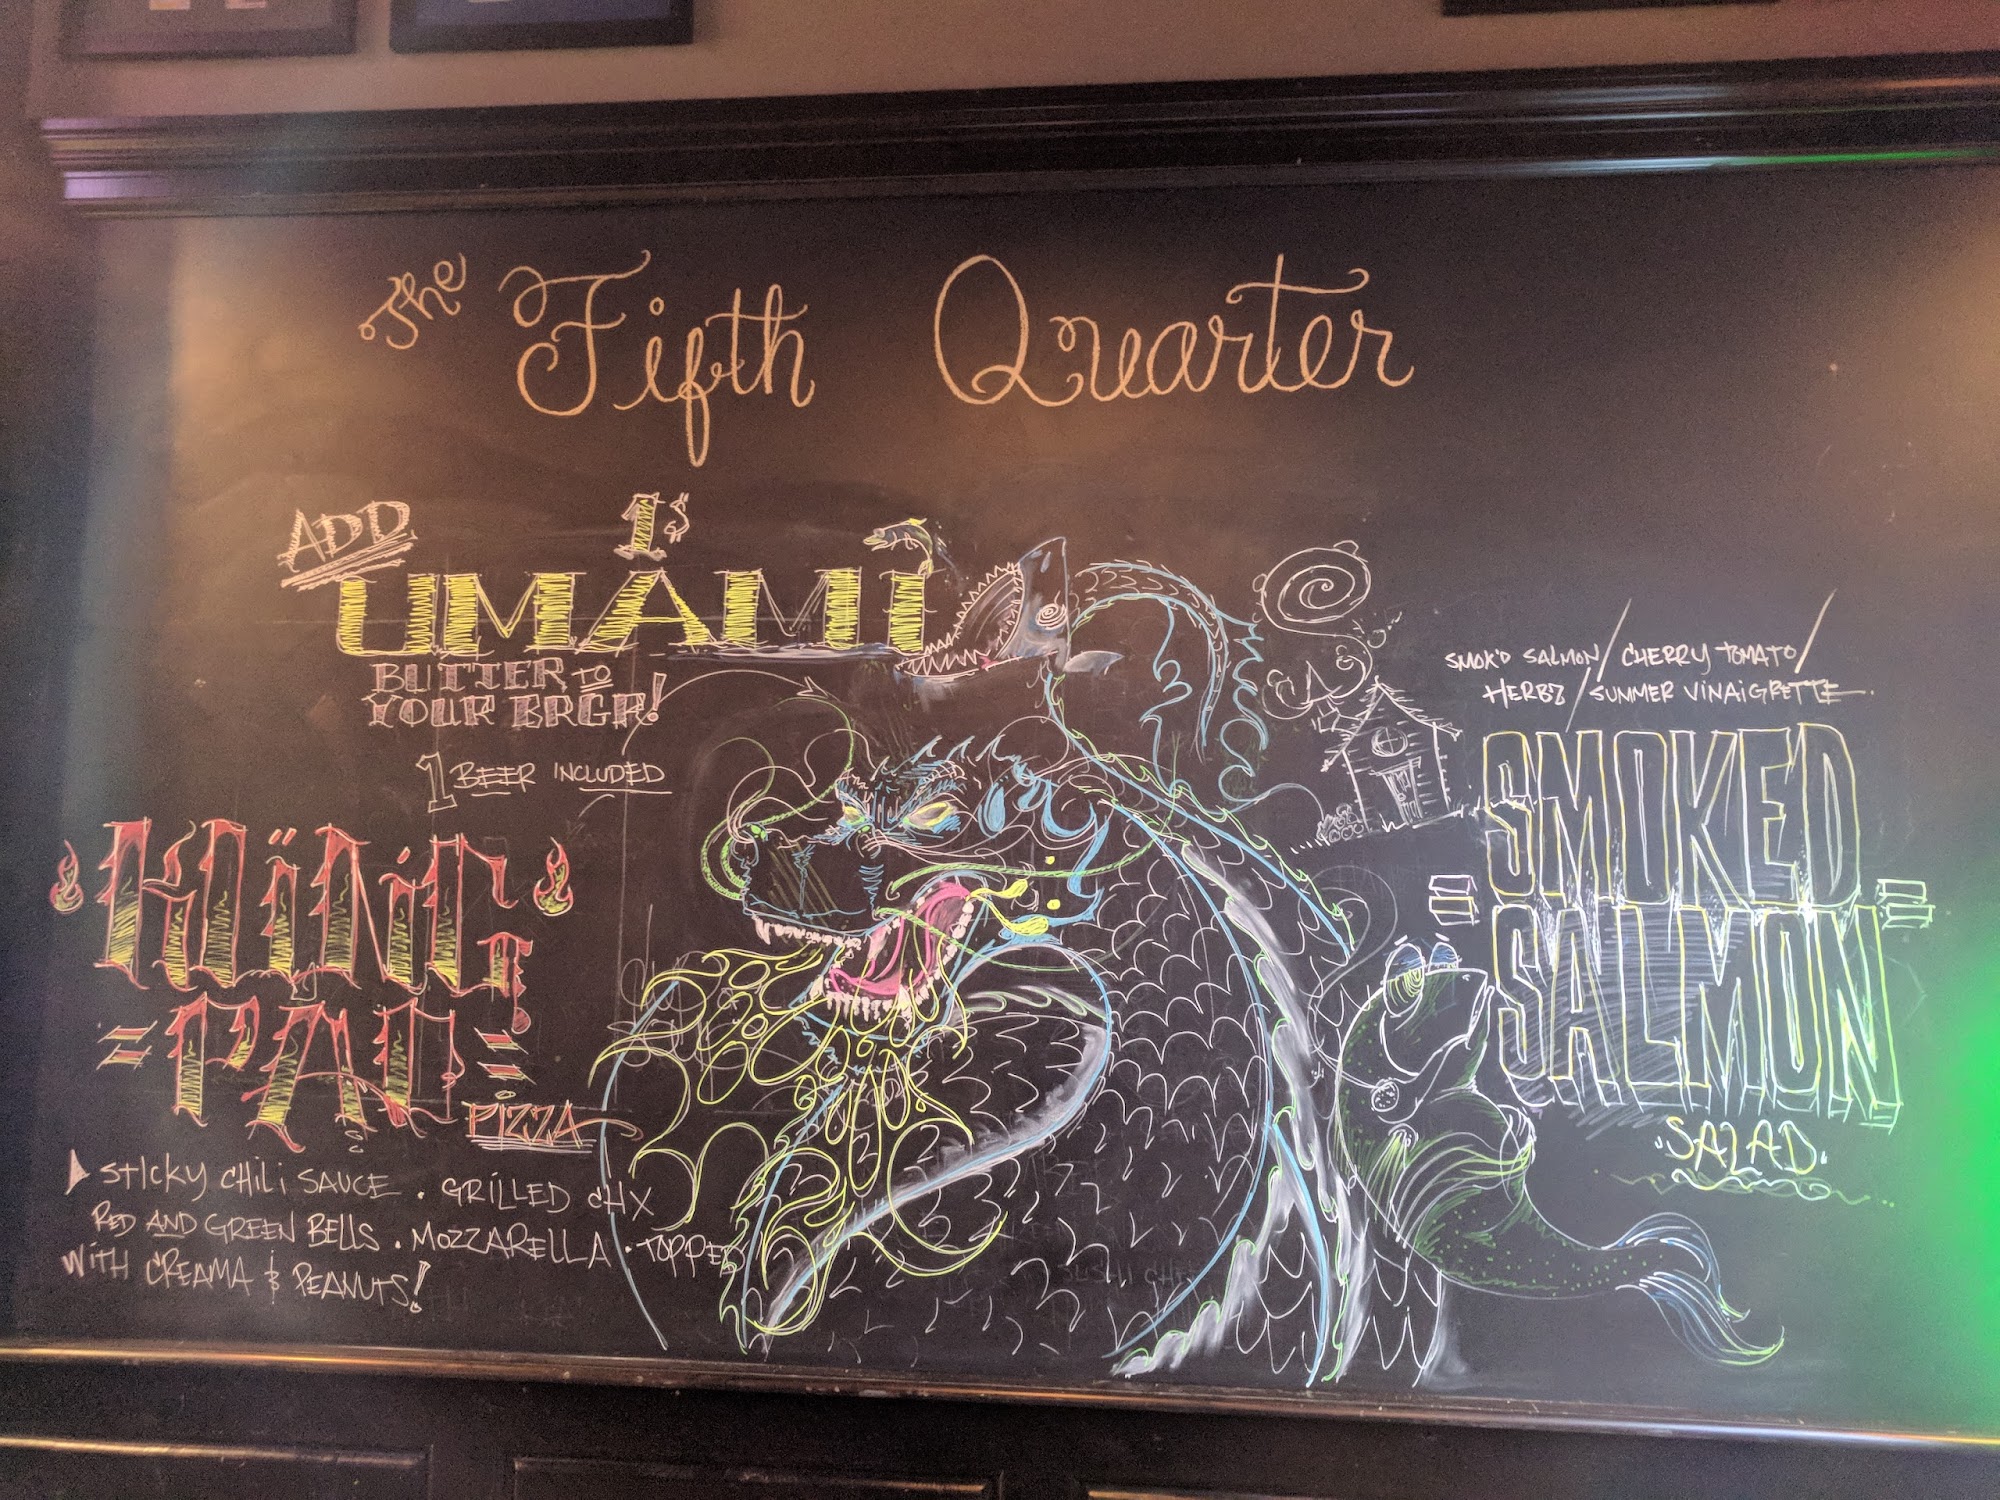 The Fifth Quarter
ADD 1$
UMAMI
BUTTER TO
YOUR BRGR!
1 BEER INCLUDED
KUNG
PAO
PIZZA
STICKY CHILI SAUCE . GRILLED CHX
RED AND GREEN BELLS . MOZZARELLA . TOPPED
WITH CREAMA & PEANUTS!
SMOK'D SALMON / CHERRY TOMATO /
HERBZ / SUMMER VINAIGRETTE
SMOKED
SALMON
SALAD